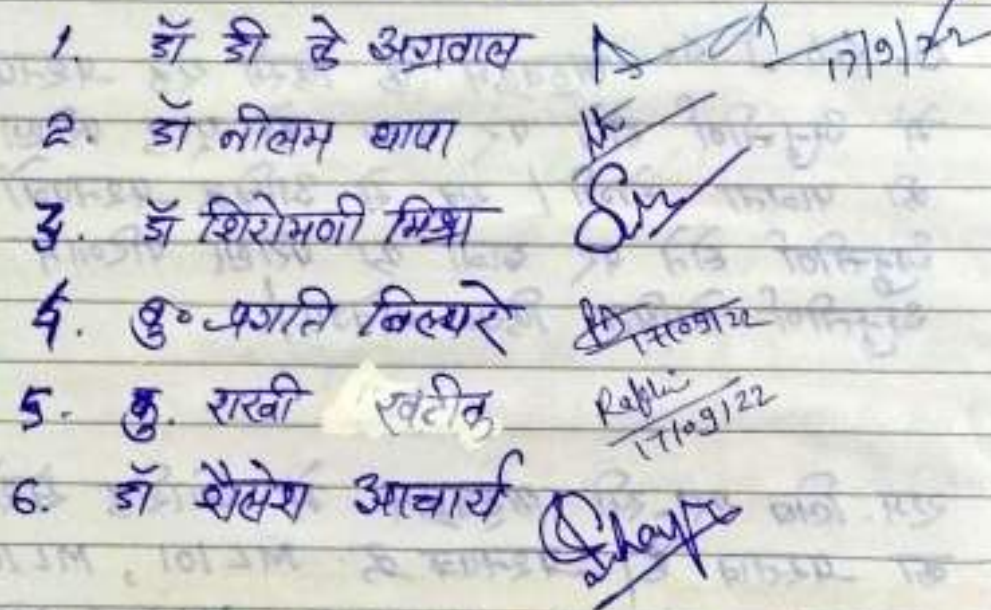 1. डॉ डी के अग्रवाल 17/9/22
2. डॉ नीलम थापा
3. डॉ शिरोमणी मिश्रा
4. कु॰ प्रगति बिल्थरे 17/09/22
5. कु. राखी खटीक Rakhi 17/09/22
6. डॉ शैलेश आचार्य